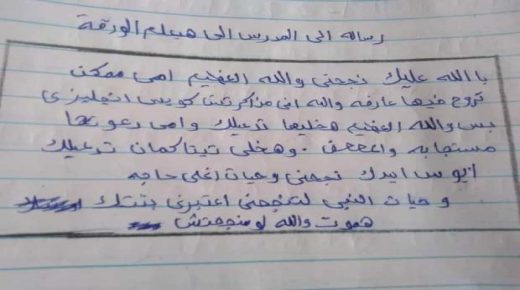 رساله الى المدرس الى هيعلم الورقة
بالله عليك نجحنى والله العظيم امى ممكن
تروح فيها عارفه والله انى مذاكرتش كويس انجليزى
بس والله العظيم هخليها تدعيلك وامى دعوتها
مستجابه وهخلى تيتا كمان تدعيلك
ابوس ايدك نجحنى وحيات اغلى حاجه
وحيات النبى لتنجحنى اعتبرنى بنتك
هموت والله لو منجحتش